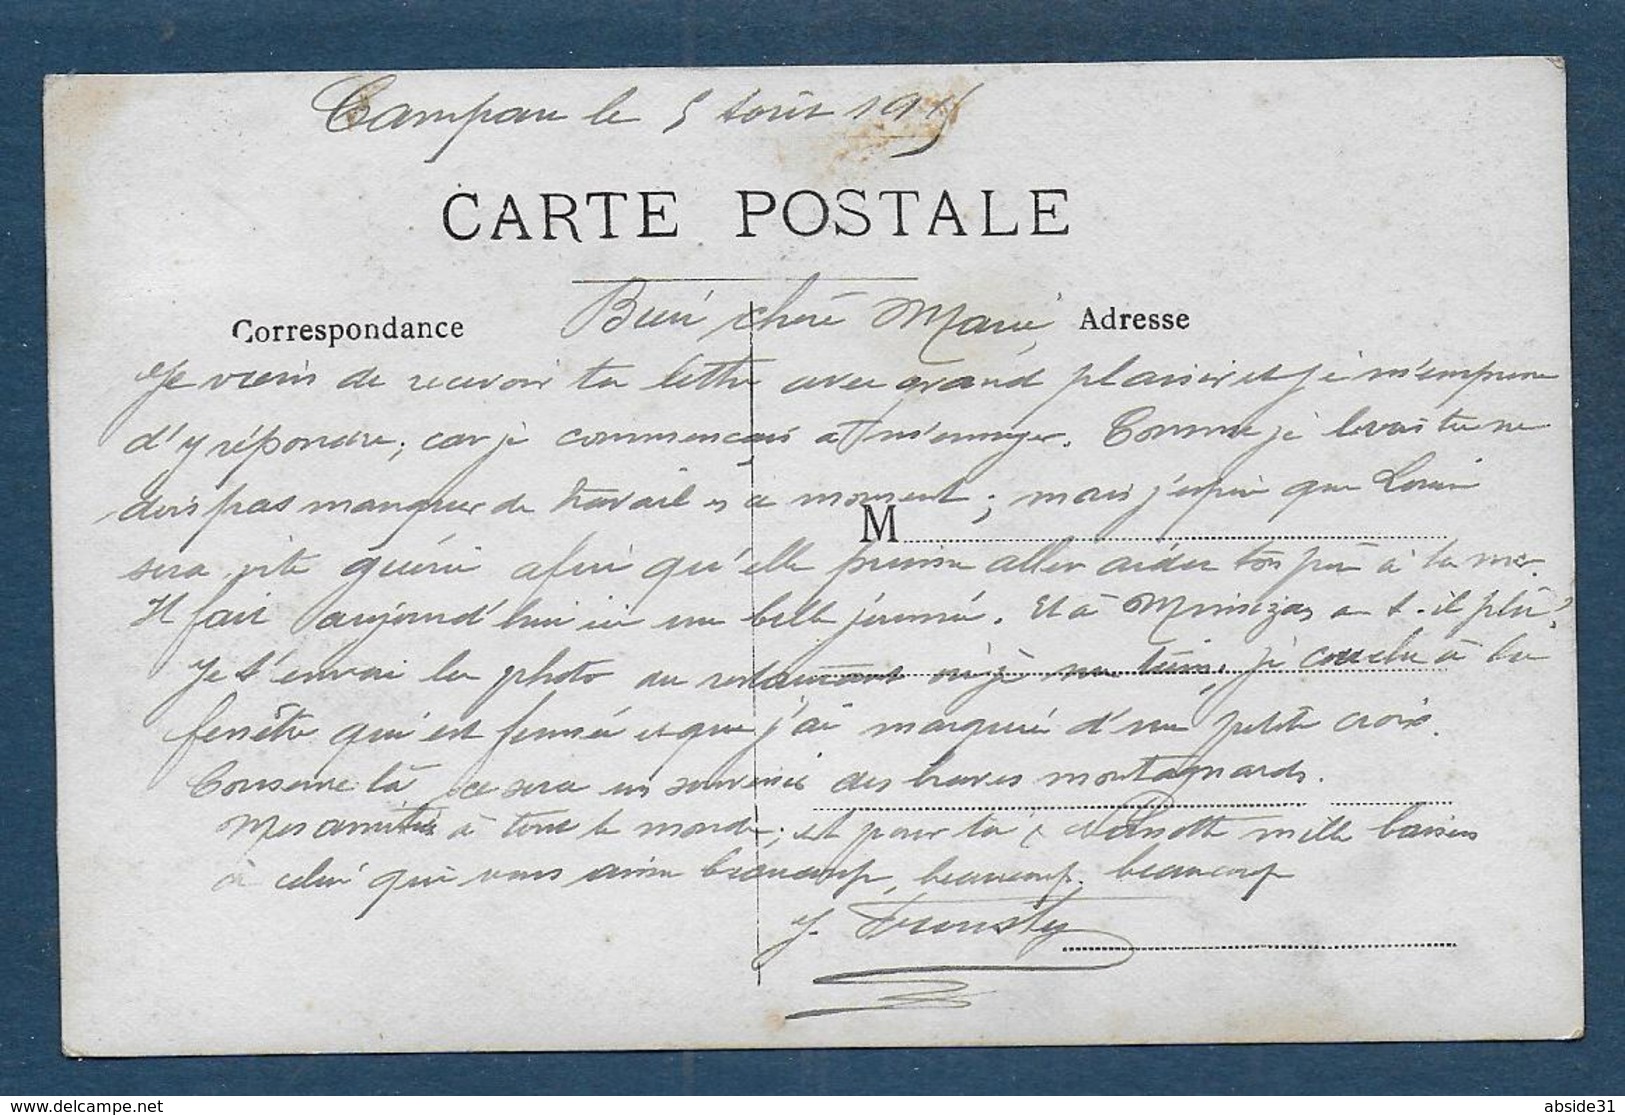 Campan le 5 Août 1915
CARTE POSTALE
Correspondance
Adresse
Bien chère Marie
Je viens de recevoir ta lettre avec grand plaisir et je m'empresse
d'y répondre, car je commençais a m'ennuyer. Comme je le vois tu ne
dois pas manquer de travail en ce moment; mais j'espère que
M
sera vite guérie afin qu'elle puisse aller aider ton père à la
Il fait aujourd'hui ici une belle journée. Et à a-t-il plû?
Je t'envoi la photo du restaurant où je je couche à la
fenêtre qui est fermée et que j'ai marquée d'une petite croix.
Conserve là ce sera un souvenir des braves montagnards.
Mes amitiés à tout le monde; et pour toi mille baisers
à celui qui vous aime beaucoup, beaucoup, beaucoup
abside31
www.delcampe.net